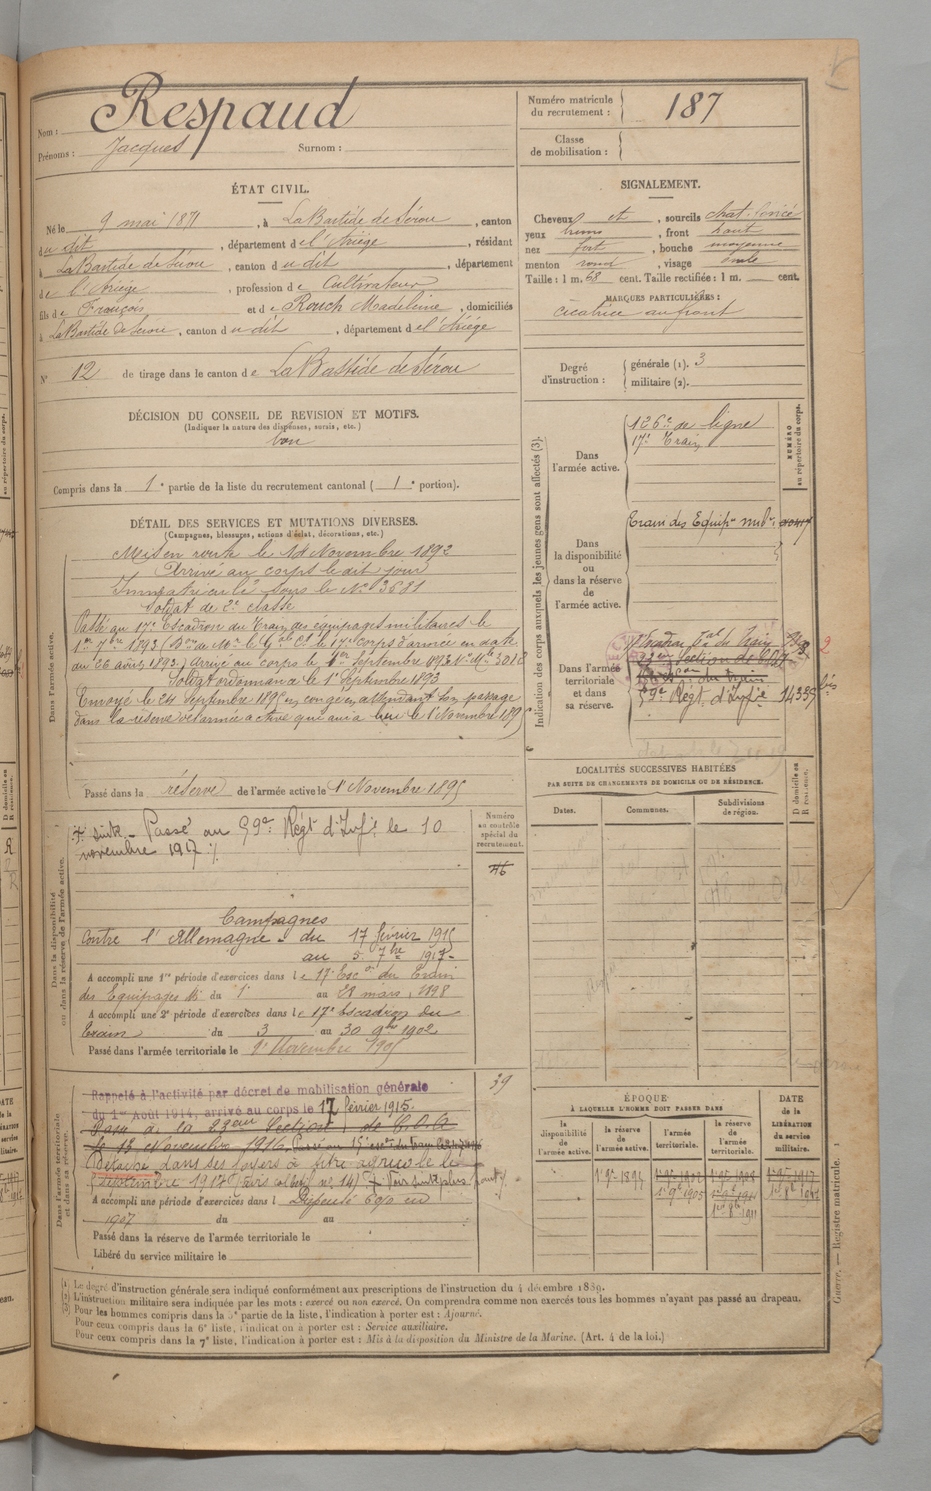 Nom : Respaud
Prénoms : Jacques Surnom :
Numéro matricule du recrutement : 187
Classe de mobilisation :
ÉTAT CIVIL.
Né le 9 mai 1871, à La Bastide de Sérou, canton
du dit, département de l'Ariège, résidant
à La Bastide de Sérou, canton du dit, département
de l'Ariège, profession de Cultivateur
fils de François et de Rouch Madeleine, domiciliés
à La Bastide de Sérou, canton du dit, département de l'Ariège
N° 12 de tirage dans le canton de La Bastide de Sérou
SIGNALEMENT.
Cheveux et, sourcils chat. foncé
yeux bruns, front haut
nez fort, bouche moyenne
menton rond, visage ovale
Taille : 1 m. 68 cent. Taille rectifiée : 1 m. cent.
MARQUES PARTICULIÈRES :
cicatrice au front
Degré d'instruction : générale (1). 3
militaire (2).
DÉCISION DU CONSEIL DE REVISION ET MOTIFS.
(Indiquer la nature des dispenses, sursis, etc.)
bon
Compris dans la 1e partie de la liste du recrutement cantonal ( 1e portion).
DÉTAIL DES SERVICES ET MUTATIONS DIVERSES.
(Campagnes, blessures, actions d'éclat, décorations, etc.)
Dans l'armée active.
Mis en route le 12 Novembre 1892
Arrivé au corps le dit jour
Immatriculé sous le N° 3681
Soldat de 2e classe
Passé au 17e Escadron du Train des équipages militaires le
1er 7bre 1893 (Don de Mr le Gal Ct le 17e Corps d'armée en date
du 26 avril 1893.) Arrivé au corps le 1er Septembre 1893 N° Mle 3018
Soldat ordonnance le 1er Septembre 1893
Envoyé le 24 Septembre 1895 en congé en attendant son passage
dans la réserve de l'armée active qui aura lieu le 1er Novembre 1895
Passé dans la réserve de l'armée active le 1er Novembre 1895
Indication des corps auxquels les jeunes gens sont affectés (3).
NUMÉRO au répertoire du corps.
Dans l'armée active.
126e de ligne
17e Train
Dans la disponibilité ou dans la réserve de l'armée active.
Train des Equip. mil.
Dans l'armée territoriale et dans sa réserve.
Section de C.O.A
du train
59e Régt d'Infie 14335 bis
LOCALITÉS SUCCESSIVES HABITÉES
PAR SUITE DE CHANGEMENTS DE DOMICILE OU DE RÉSIDENCE.
Dates. Communes. Subdivisions de région. D domicile ou R résidence.
Dans la disponibilité ou dans la réserve de l'armée active.
Numéro au contrôle spécial du recrutement.
46
suite - Passé au 59e Régt d'Infie le 10
novembre 1917 ./.
Campagnes
Contre l'Allemagne : du 17 février 1915
au 5 7bre 1917-
A accompli une 1re période d'exercices dans le 17e Escon du Train
des Equipages Mi du 1er au 28 mars 1898
A accompli une 2e période d'exercices dans le 17e Escadron du
Train du 3 au 30 9bre 1902
Passé dans l'armée territoriale le 1er Novembre 1905
39
Dans l'armée territoriale et dans sa réserve.
Rappelé à l'activité par décret de mobilisation générale
du 1er Août 1914, arrivé au corps le 17 février 1915.
Passé à la 23eme Section de C.O.A
le 13 Novembre 1916. Passé au
Détaché dans ses foyers à titre agricole le
5 septembre 1917 Voir suite plus haut ./.
A accompli une période d'exercices dans l Dispensé en
1907 du au
Passé dans la réserve de l'armée territoriale le
Libéré du service militaire le
ÉPOQUE
À LAQUELLE L'HOMME DOIT PASSER DANS
la disponibilité de l'armée active.
la réserve de l'armée active.
l'armée territoriale.
la réserve de l'armée territoriale.
DATE de la LIBÉRATION du service militaire.
1er 9bre 1895
1er 9bre 1905
(1) Le degré d'instruction générale sera indiqué conformément aux prescriptions de l'instruction du 4 décembre 1889.
(2) L'instruction militaire sera indiquée par les mots : exercé ou non exercé. On comprendra comme non exercés tous les hommes n'ayant pas passé au drapeau.
(3) Pour les hommes compris dans la 5e partie de la liste, l'indication à porter est : Ajourné.
Pour ceux compris dans la 6e liste, l'indication à porter est : Service auxiliaire.
Pour ceux compris dans la 7e liste, l'indication à porter est : Mis à la disposition du Ministre de la Marine. (Art. 4 de la loi.)
Guerre. — Registre matricule. 1